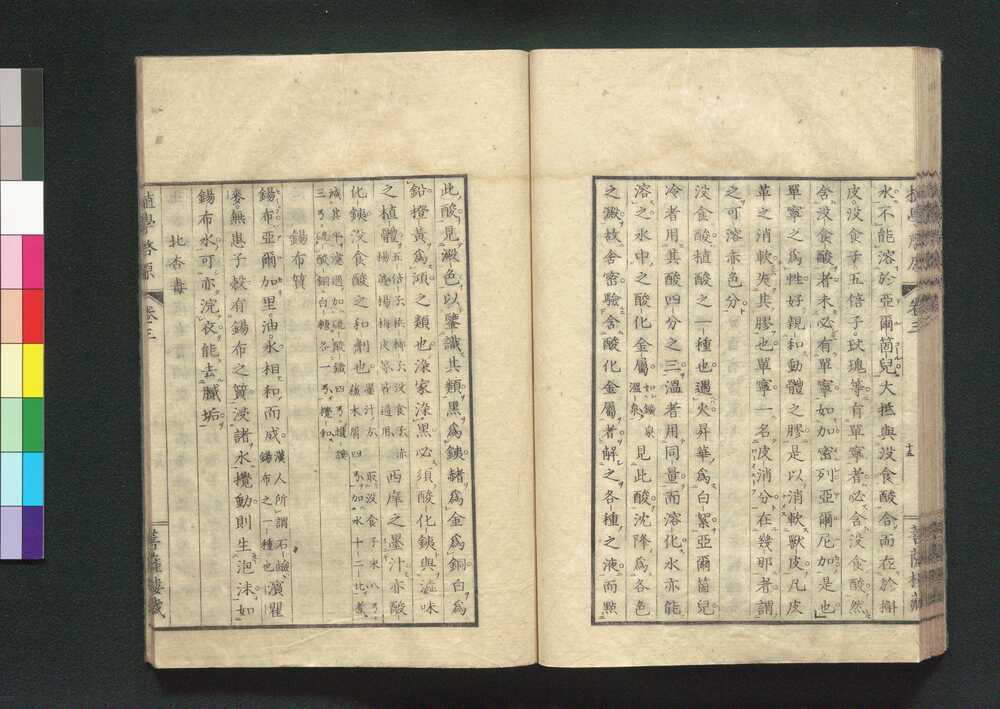 水不能溶於亞爾箇兒大抵與没食酸合而在於槲
皮没食子五倍子玫瑰等有單寧者必含没食酸然
含没食酸者未必有單寧如加密列亞爾尼加是也
單寧之爲性好親和動體之膠是以消軟獸皮凡皮
革之消軟失其膠也單寧一名皮消分在幾那者謂
之可溶赤色分
没食酸植酸之一種也遇火昇華爲白絮亞爾箇兒
冷者用其酸四分之三溫者用同量而溶化水亦能
溶之水中之酸化金屬如鑛泉溫泉見此酸沈降爲各色
之澱故舍密驗含酸化金屬者解之各種之液而點
十五
植學啓原 卷三
菩薩樓藏
此酸見澱色以鑒識其類黑爲鐵赭爲金爲銅白爲
鉛橙黃爲 之類也染家染黑必須酸化鐵與澁味
之植體五倍子檳榔子没食子赤楊楊梅皮等皆通用西席之墨汁亦酸
化鐵没食酸之和劑也墨汁方取没食子末八 蘇木屑四 加水十二 煮
減其半濾過加硫酸鐵四 護謨
三 硫酸銅白糖各一 攪和
錫布質
錫布亞爾加里油水相和而成漢人所謂石鹼錫布之一種也濱瞿
麥無患子殼有錫布之質浸諸水攪動則生泡沫如
錫布水可亦浣衣能去膩垢
北杏毒
植學啓原 卷三
菩薩樓藏